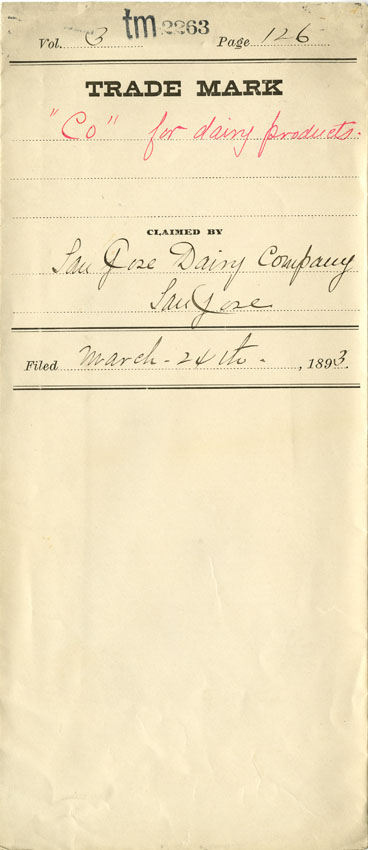 Vol. 3 tm 2263 Page 126
TRADE MARK
"Co" for dairy products.
CLAIMED BY
San Jose Dairy Company
San Jose
Filed March - 24th - , 1893.